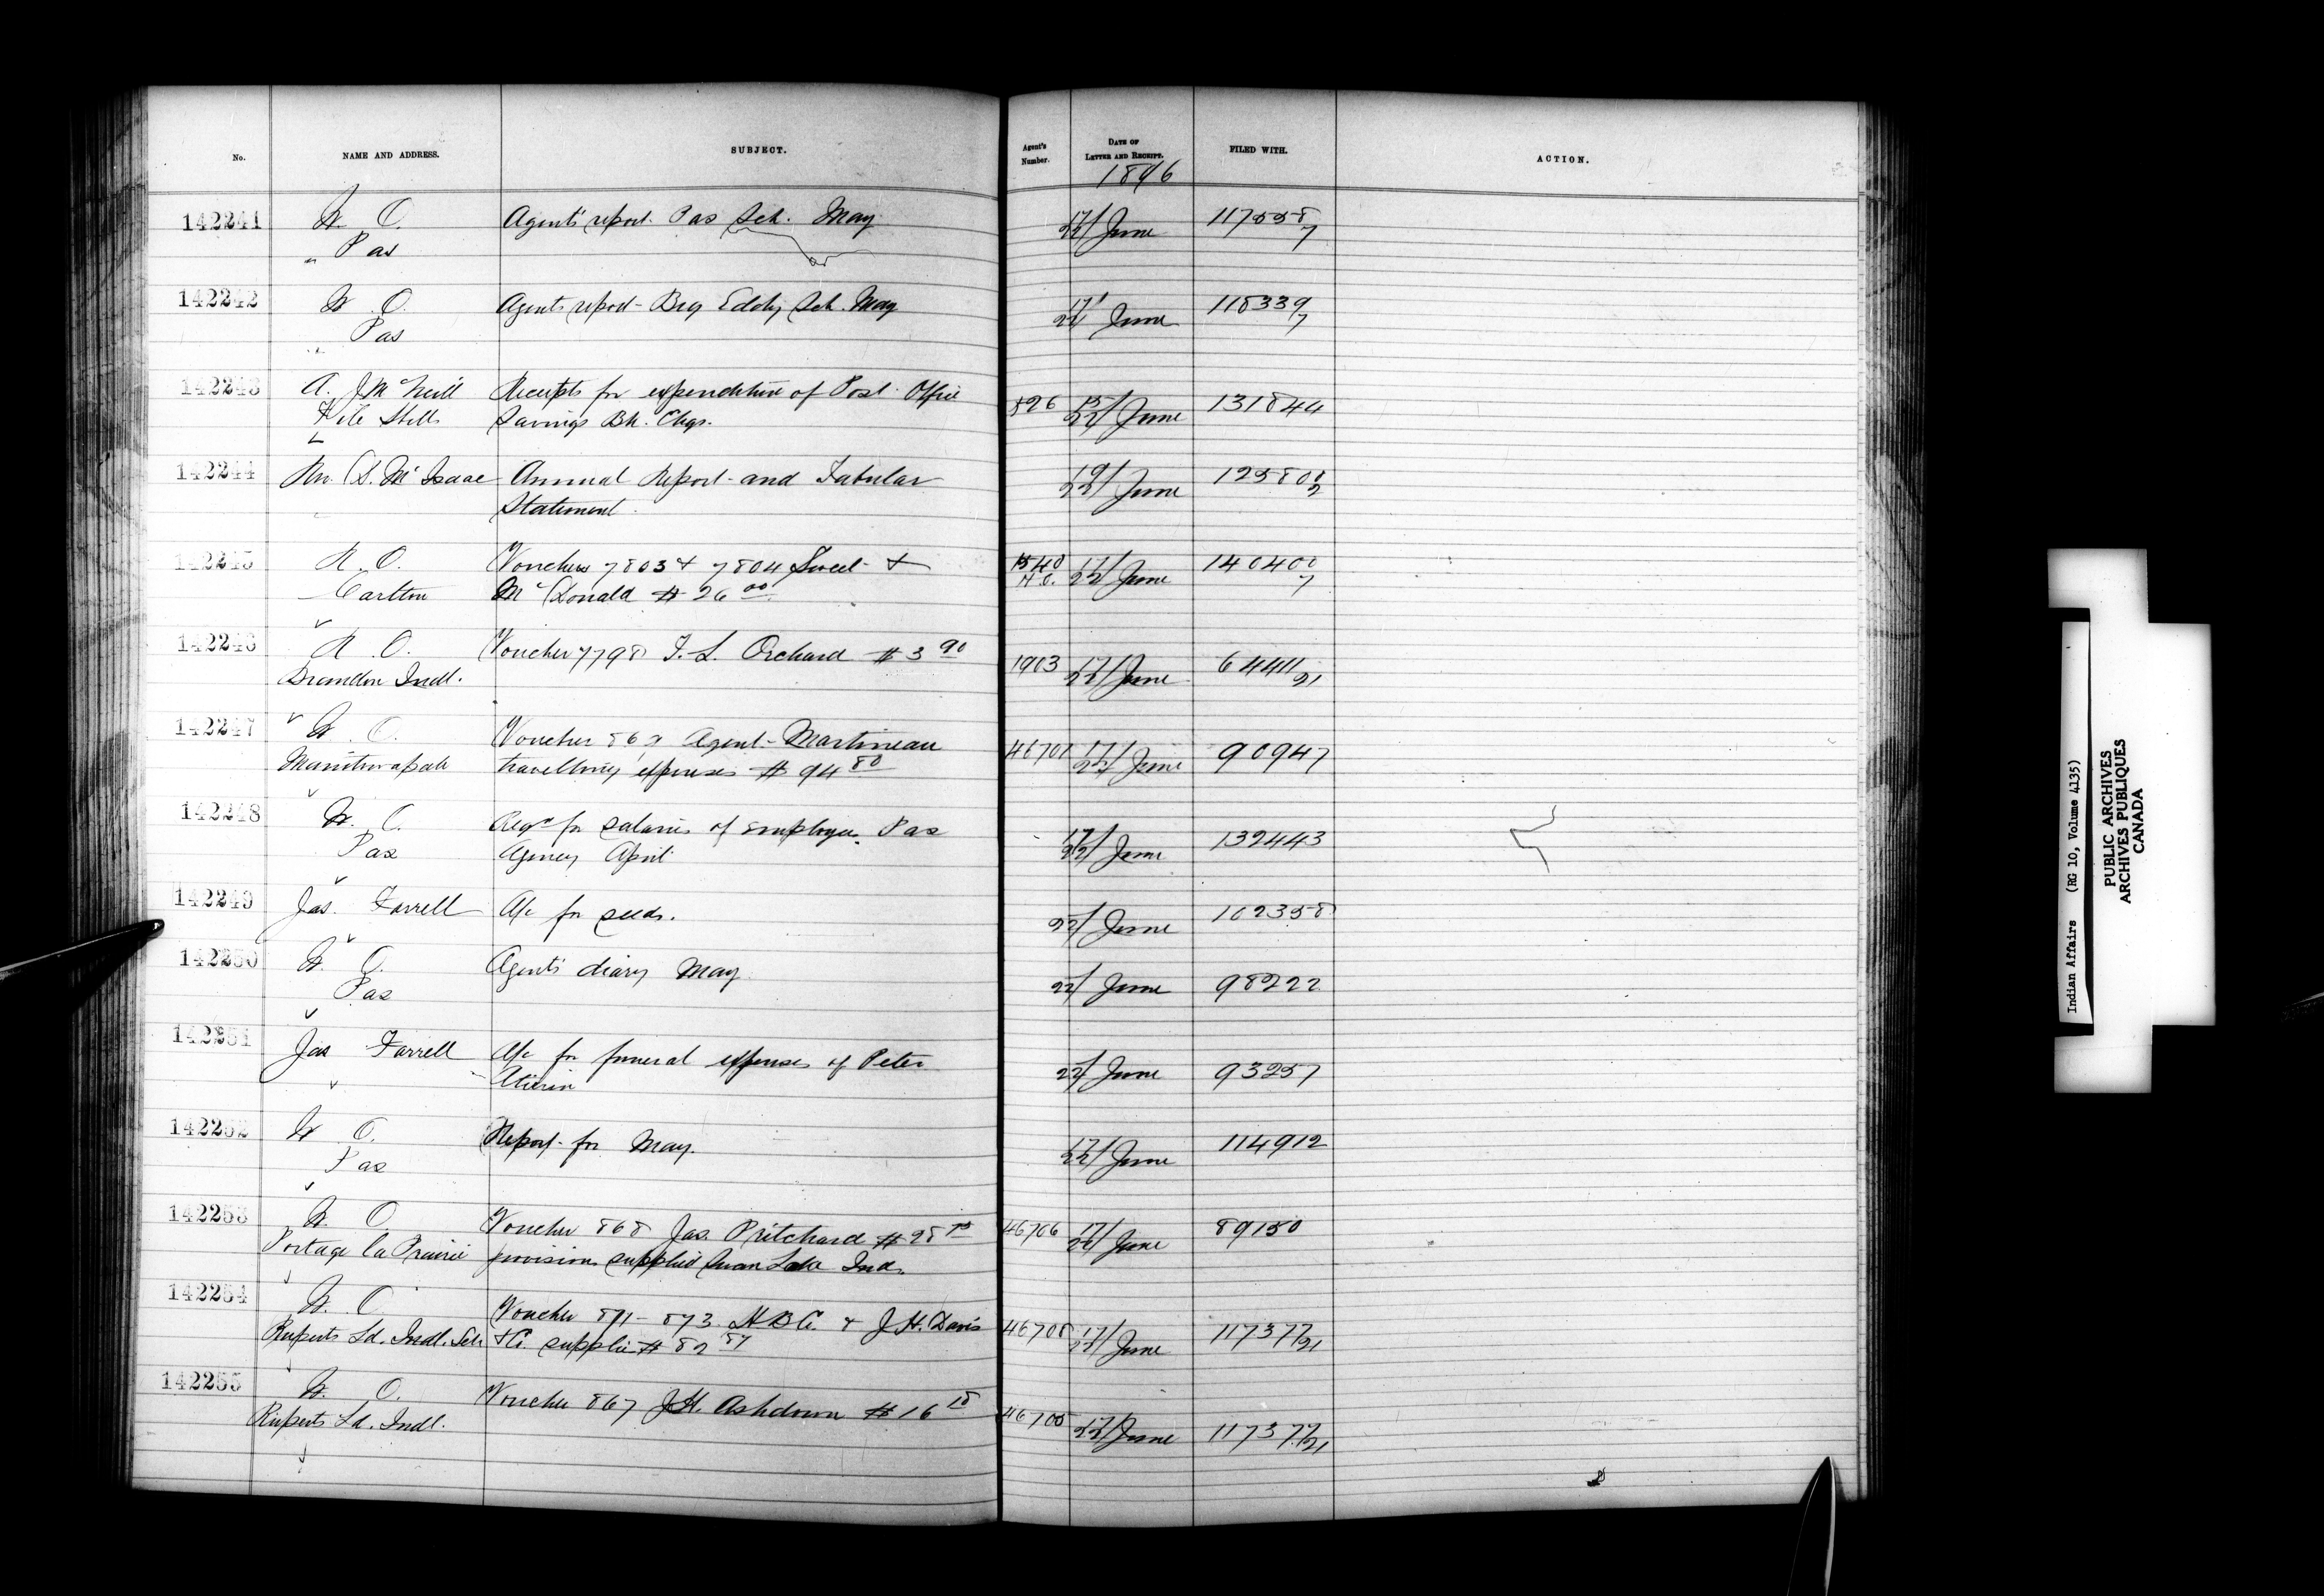 No. NAME AND ADDRESS. SUBJECT. Agent's Number. DATE OF LETTER AND RECEIPT. FILED WITH. ACTION.
1896
142241 W. O. Agent's report Pas Sch. May 17/22 June 117558/7
" Pas
142242 W. O. Agents report Big Eddy Sch. May 17/22 June 118339/7
" Pas
142243 A. J McNeill Receipts for expenditure of Post Office 826 15/22 June 131844
File Hills Savings Bk. Chqs.
142244 Rev. D. McIsaac Annual Report and Tabular 19/22 June 125800/2
Statement
142245 R. O. Vouchers 7803 & 7804 Sweet & 1540 R.O. 17/22 June 140400/7
Carlton McDonald $26 00
142246 R. O. Voucher 7798 F. L. Orchard $3 90 1903 17/22 June 64411/21
Brandon Indl.
142247 W. O. Voucher 869 Agent Martineau 46707 17/22 June 90947
Manitowapah travelling expenses $94 80
142248 W. O. Reqn for salaries of employees Pas 17/22 June 132443
Pas Agency April
142249 Jas. Farrell A/c for seeds. 22/ June 102358
142250 W. O. Agent's diary May 22/ June 98222
Pas
142251 Jas Farrell A/c for funeral expenses of Peter 22/ June 93257
142252 W O. Report for May. 17/22/ June 114912
Pas
142253 W. O. Voucher 868 Jas. Pritchard $28 75 46706 17/22 June 89150
Portage la Prairie provisions supplied Swan Lake Inds.
142254 W. O. Voucher 871-873 HBCo. & J.H. Davis 46708 17/22 June 117377/21
Ruperts Ld. Indl. Sch &Co. supplies $82 87
142255 W. O. Voucher 867 J.H. Ashdown $16 18 46705 17/22 June 117377/21
Ruperts Ld. Indl.
Indian Affairs (RG 10, Volume 4135)
PUBLIC ARCHIVES
ARCHIVES PUBLIQUES
CANADA